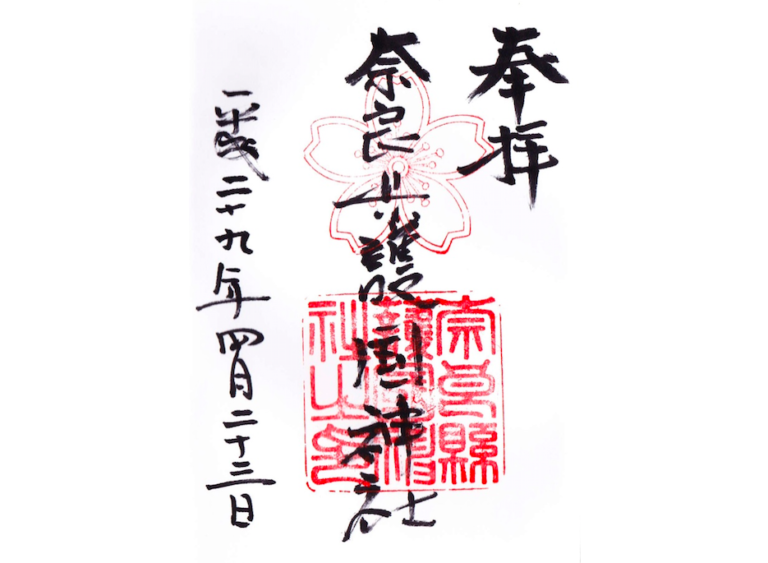 奉拝
奈良県護国神社
平成二十九年四月二十三日
奈良縣
護國神
社之印